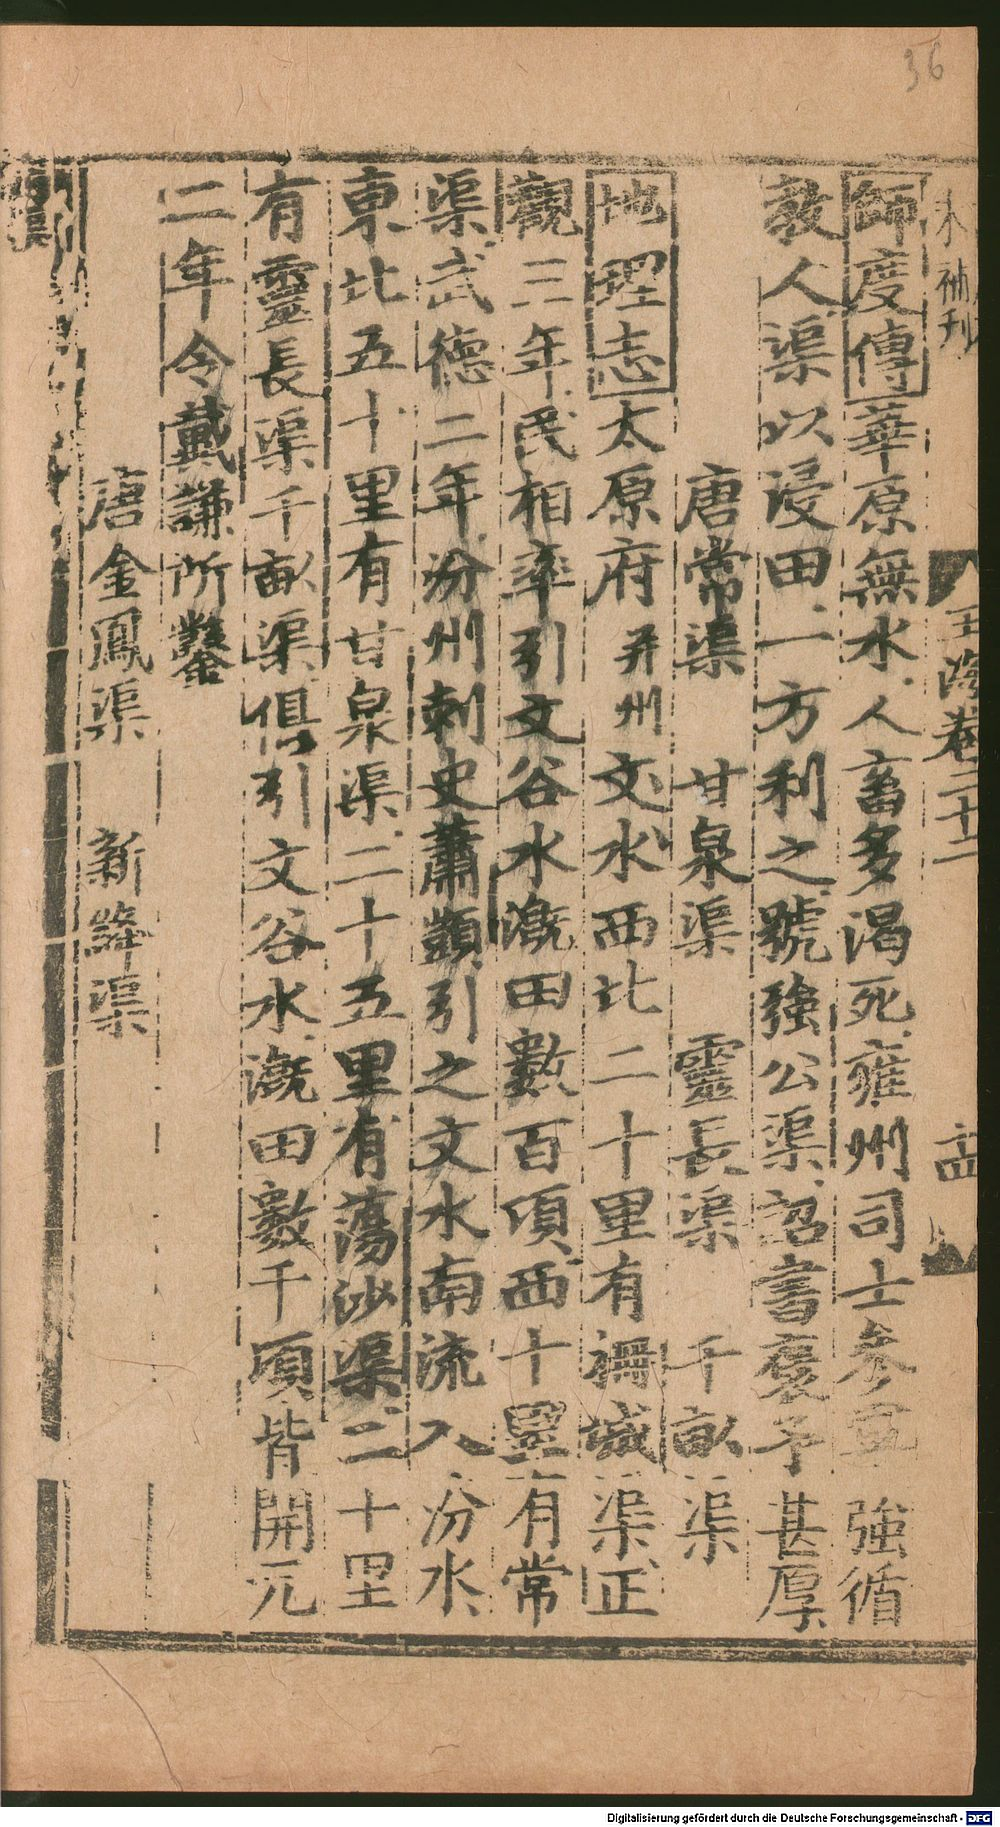 36
補刊
玉海卷二十二
師度傳華原無水人畜多渴死雍州司士參軍強循
教人渠以浸田一方利之號強公渠詔書褒予甚厚
唐常渠 甘泉渠 靈長渠 千畝渠
地理志太原府并州文水西北二十里有柵城渠正
觀三年民相率引文谷水溉田數百頃西十里有常
渠武德二年汾州刺史蕭顗引之文水南流入汾水
東北五十里有甘泉渠二十五里有蕩沙渠二十里
有靈長渠千畝渠俱引文谷水溉田數千頃皆開元
二年令戴謙所鑿
唐金鳳渠 新絳渠
Digitalisierung gefördert durch die Deutsche Forschungsgemeinschaft - DFG